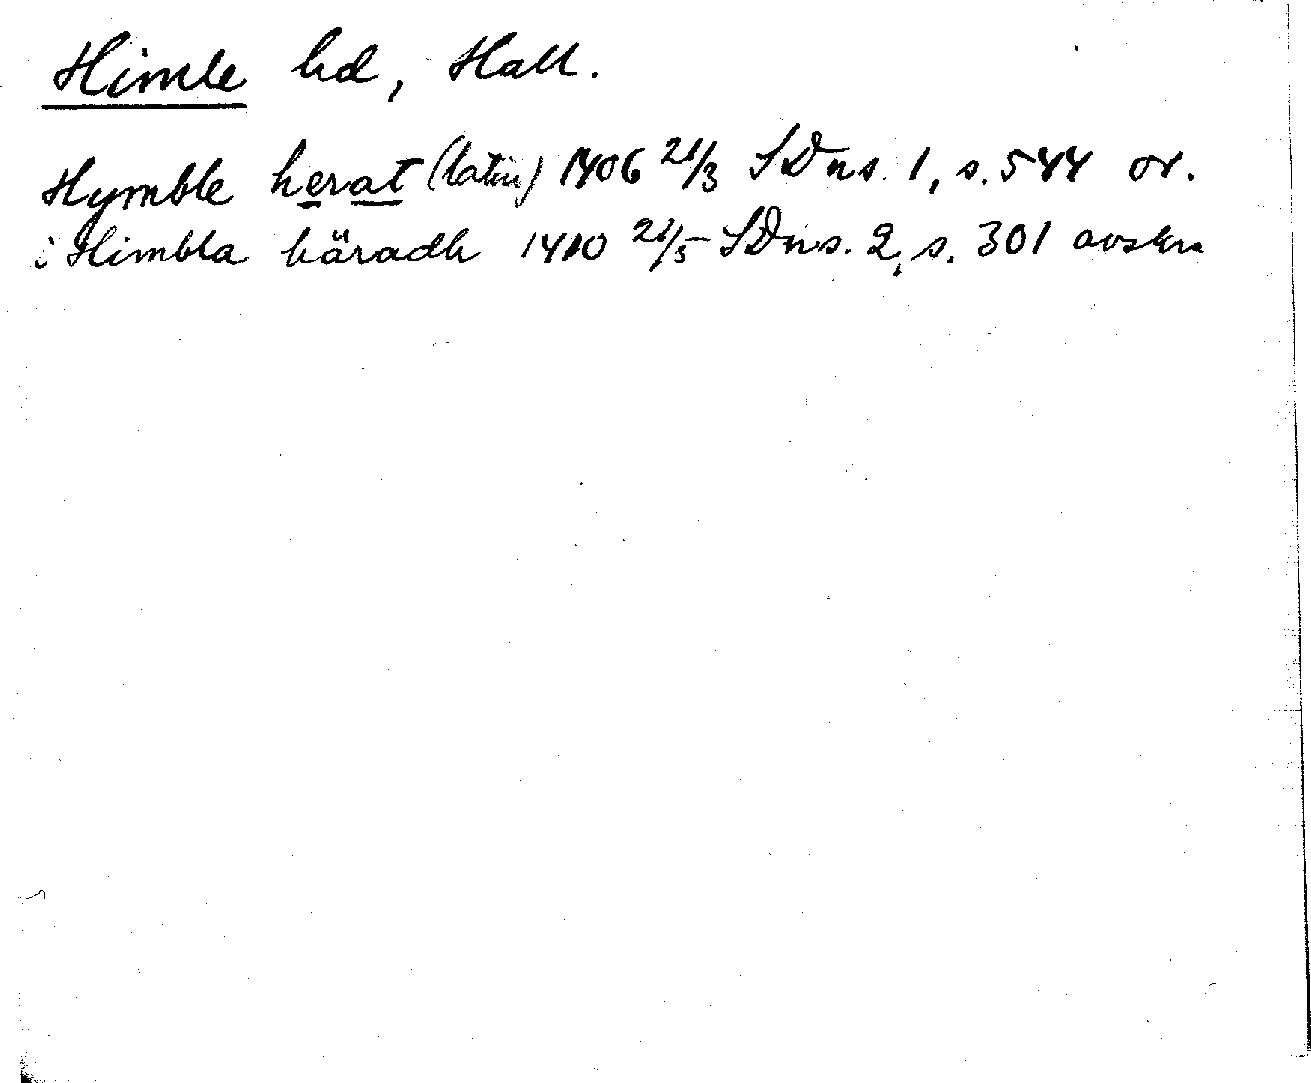 Himle hd, Hall.
Hymble herat (latin) 1406 21/3 SDns. 1, s. 544 or.
i Himbla häradh 1410 21/5 SDns. 2, s. 301 avskr